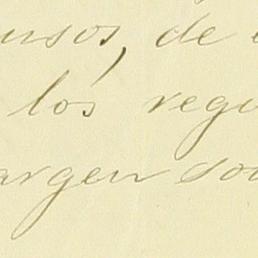 ursos, de
los regu
argen so